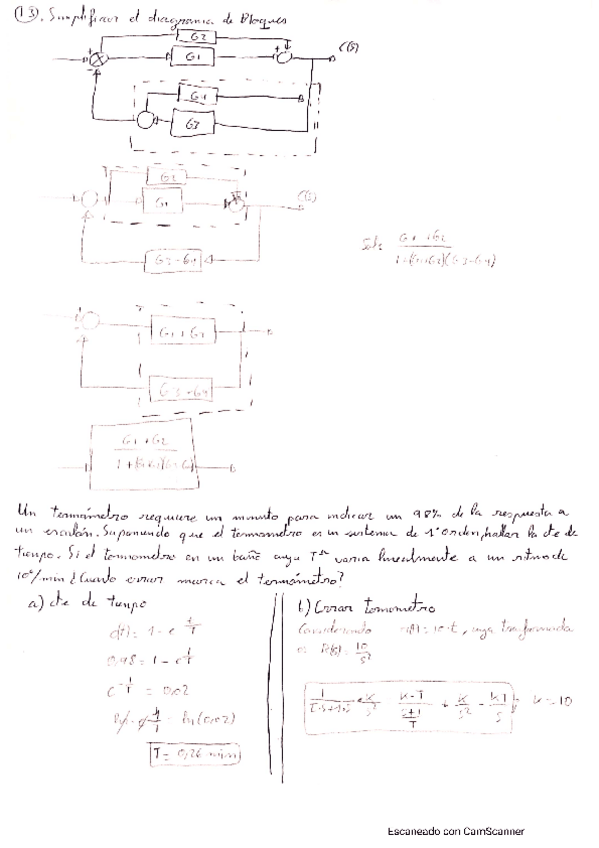 13. Simplificar el diagrama de Bloques
G2
C(s)
G1
G4
G3
G2
C(s)
G1
G3-G4
Sol: G1+G2
1+(G1+G2)(G3-G4)
G1+G2
G3-G4
G1+G2
Un termómetro requiere un minuto para indicar un 98% de la respuesta a
un escalón. Suponiendo que el termometro es un sistema de 1º Orden, hallar la cte de
tiempo. Si el termometro en un baño cuya Tª varia linealmente a un ritmo de
10º/min ¿Cuanto error marca el termómetro?
a) cte de tiempo
0,98 = 1 - e
= 0,02
ln(0,02)
T = 0,26 min
b) Error termometro
Considerando r(t) = 10·t, cuya transformada
es R(s) = 10/s²
k = 10
Escaneado con CamScanner